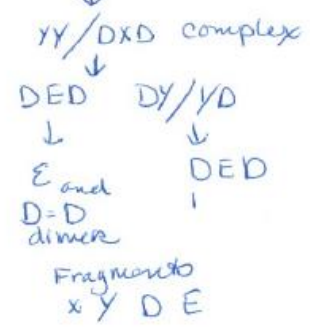 ↓
YY/DXD complex
↓
DED DY/YD
↓ ↓
ε and DED
D=D
dimers
Fragments
x Y D E